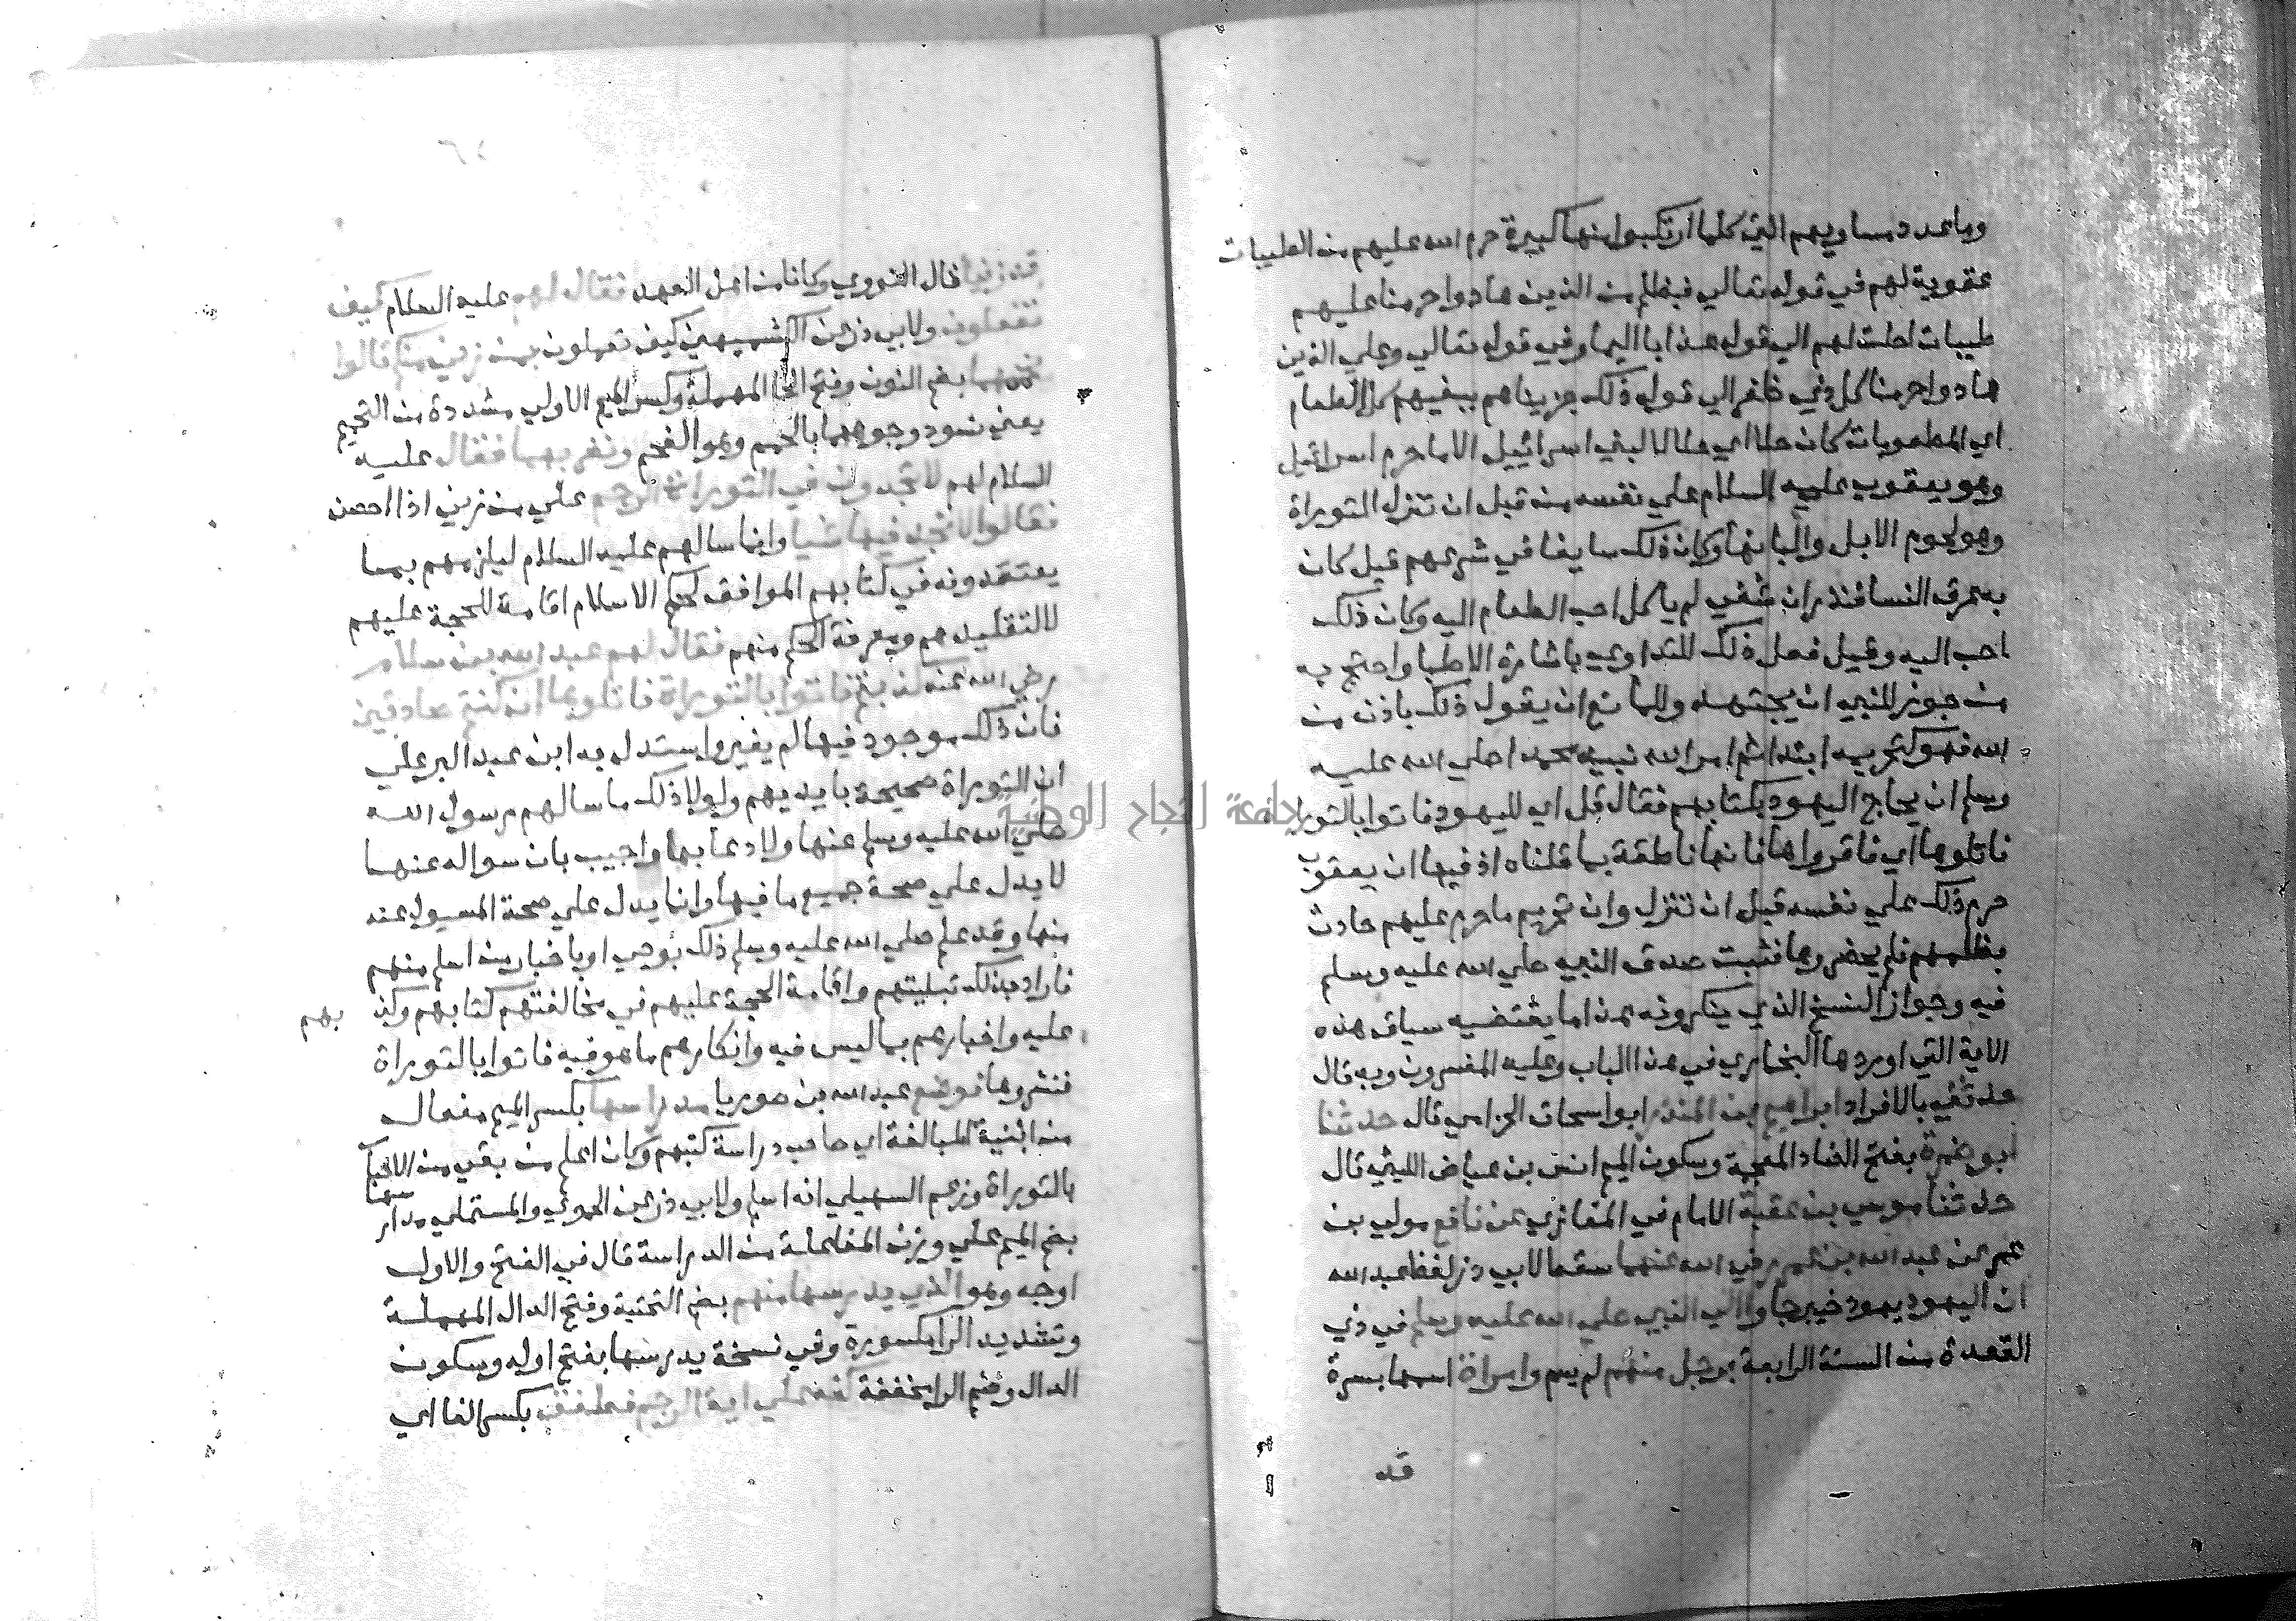 وما عدد مساويهم التي كلما ارتكبوا منها كبيرة حرم الله عليهم من الطيبات
عقوبة لهم في قوله تعالي فبظلم من الذين هادوا حرمنا عليهم
طيبات احلت لهم الي قوله عذابا اليما وفي قوله تعالي وعلي الذين
هادوا حرمنا كل ذي ظفر الي قوله ذلك جزيناهم ببغيهم كل الطعام
اي المطعومات كان حلا اي حلالا لبني اسرائيل الا ما حرم اسرائيل
وهو يعقوب عليه السلام علي نفسه من قبل ان تنزل التوراة
وهو لحوم الابل والبانها وكان ذلك سايغا في شرعهم قيل كان
به عرق النسا فنذر ان شفي لم ياكل احب الطعام اليه وكان ذلك
احب اليه وقيل فعل ذلك للتداوي باشارة الاطبا واحتج به
من جوز للنبي ان يجتهد وللمانع ان يقول ذلك باذن من
الله فهو كتحريمه ابتدا ثم امر الله نبيه محمدا صلي الله عليه
وسلم ان يحاج اليهود بكتابهم فقال قل اي لليهود فاتوا بالتوراة
فاتلوها اي فاقروها فانها ناطقة بما قلناه اذ فيها ان يعقوب
حرم ذلك علي نفسه قبل ان تنزل وان تحريم ما حرم عليهم حادث
بظلمهم فلم يحضروها فثبت صدق النبي صلي الله عليه وسلم
فيه وجواز النسخ الذي ينكرونه هذا ما يقتضيه سياق هذه
الاية التي اوردها البخاري في هذا الباب وعليه المفسرون وبه قال
حدثني بالافراد ابراهيم بن المنذر ابو اسحاق الحزامي قال حدثنا
ابو ضمرة بفتح الضاد المعجمة وسكون الميم انس بن عياض الليثي قال
حدثنا موسي بن عقبة الامام في المغازي عن نافع مولي بن
عمر عن عبد الله بن عمر رضي الله عنهما سقط لابي ذر لفظ عبد الله
ان اليهود يهود خيبر جاوا الي النبي صلي الله عليه وسلم في ذي
القعدة من السنة الرابعة برجل منهم لم يسم وامراة اسمها بسرة
قد
قد زنيا قال النووي وكانا من اهل العهد فقال لهم عليه السلام كيف
تفعلون ولابي ذر عن الكشميهني كيف تعملون بمن زني منكم قالوا
نحممهما بضم النون وفتح الحا المهملة وكسر الميم الاولي مشددة من التحميم
يعني نسود وجوههما بالحمم وهو الفحم ونضربهما فقال عليه
السلام لهم لا تجدون في التوراة الرجم علي من زني اذا احصن
فقالوا لا نجد فيها شيا وانما سالهم عليه السلام ليلزمهم بما
يعتقدونه في كتابهم الموافق لحكم الاسلام اقامة للحجة عليهم
لا لتقليدهم ومعرفة الحكم منهم فقال لهم عبد الله بن سلام
رضي الله عنه كذبتم فاتوا بالتوراة فاتلوها ان كنتم صادقين
فان ذلك موجود فيها لم يغير واستدل به ابن عبد البر علي
ان التوراة صحيحة بايديهم ولولا ذلك ما سالهم رسول الله
صلي الله عليه وسلم عنها ولا دعا بها واجيب بان سواله عنها
لا يدل علي صحة جميع ما فيها وانما يدل علي صحة المسيول عنه
منها وقد علم صلي الله عليه وسلم ذلك بوحي او باخبار من اسلم منهم
فاراد بذلك تبكيتهم واقامة الحجة عليهم في مخالفتهم كتابهم وكذ بهم
عليه واخبارهم بما ليس فيه وانكارهم ما هو فيه فاتوا بالتوراة
فنشروها فوضع عبد الله بن صوريا مدراسها بكسر الميم مفعال
من ابنية المبالغة اي صاحب دراسة كتبهم وكان اعلم من بقي من الاحبار
بالتوراة وزعم السهيلي انه اسلم ولابي ذر عن الحموي والمستملي مدارسها
بضم الميم علي وزن المفاعلة من الدراسة قال في الفتح والاول
اوجه وهو الذي يدرسها منهم بضم التحتية وفتح الدال المهملة
وتشديد الرا مكسورة وفي نسخة يدرسها بفتح اوله وسكون
الدال وضم الرا مخففة كفه علي اية الرجم فطفق بكسر الفا اي
جامعة النجاح الوطنية